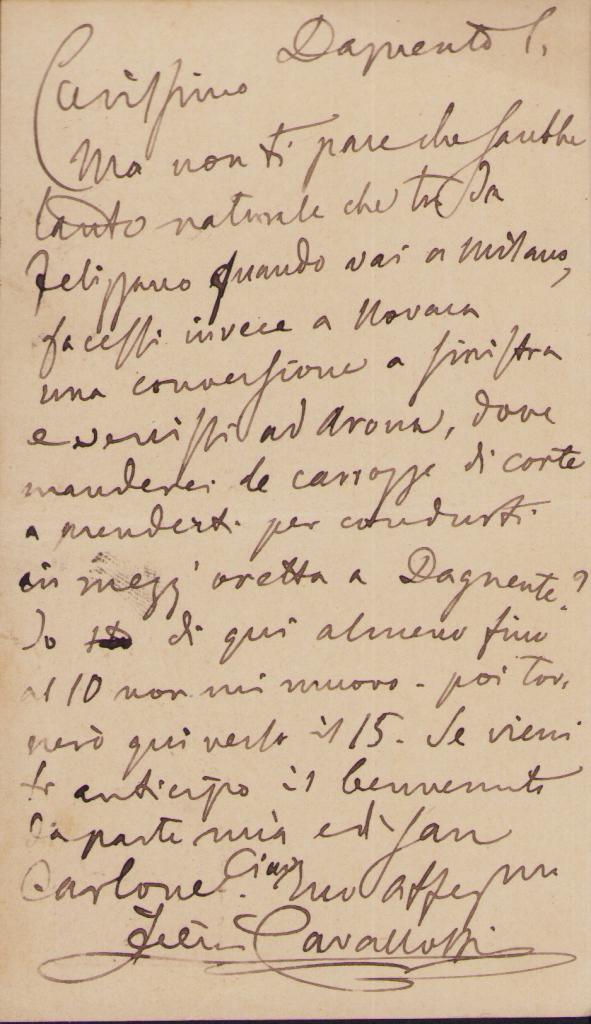 Dagnente 1.
Carissimo
Ma non ti pare che sarebbe
tanto naturale che tu da
Felizzano quando vai a Milano,
facessi invece a Novara
una conversione a sinistra
e venissi ad Arona, dove
manderei le carrozze di corte
a prenderti per condurti
in mezz'oretta a Dagnente?
Io di qui almeno fino
al 10 non mi muovo - poi tor.
nerò qui verso il 15. Se vieni
ti anticipo il benvenuto
da parte mia e di San
Carlone. Ciao tuo affezmo
Felice Cavallotti